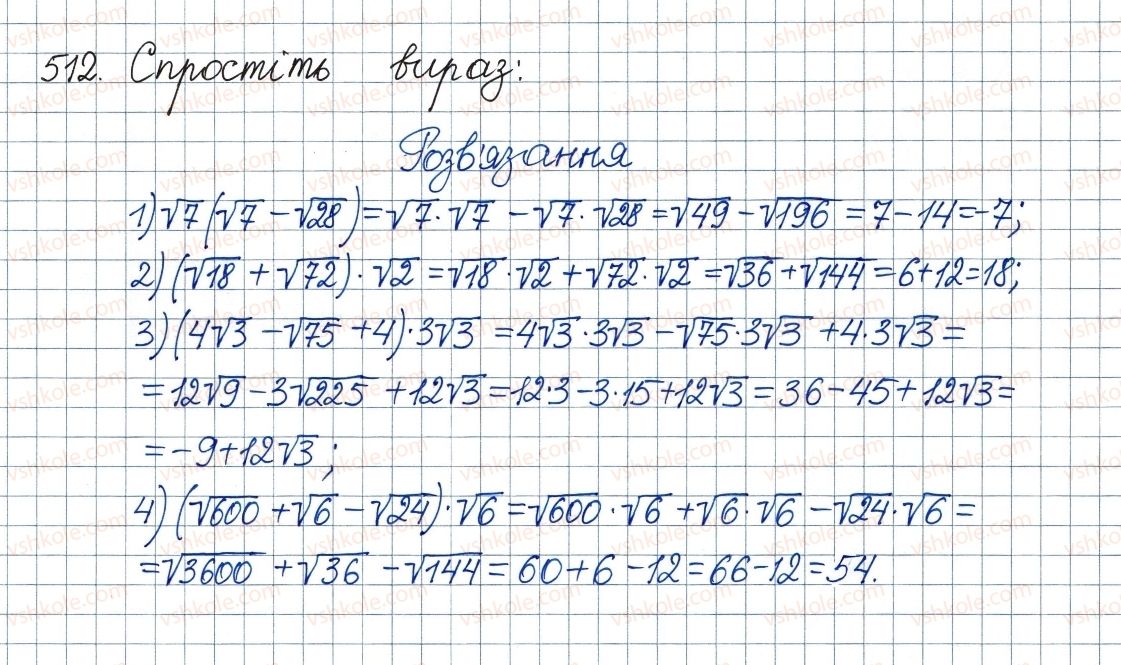 512. Спростіть вираз:
Розв'язання
1) √7 (√7 − √28) = √7 · √7 − √7 · √28 = √49 − √196 = 7 − 14 = −7;
2) (√18 + √72) · √2 = √18 · √2 + √72 · √2 = √36 + √144 = 6 + 12 = 18;
3) (4√3 − √75 + 4) · 3√3 = 4√3 · 3√3 − √75 · 3√3 + 4 · 3√3 =
= 12√9 − 3√225 + 12√3 = 12·3 − 3·15 + 12√3 = 36 − 45 + 12√3 =
= −9 + 12√3;
4) (√600 + √6 − √24) · √6 = √600 · √6 + √6 · √6 − √24 · √6 =
= √3600 + √36 − √144 = 60 + 6 − 12 = 66 − 12 = 54.